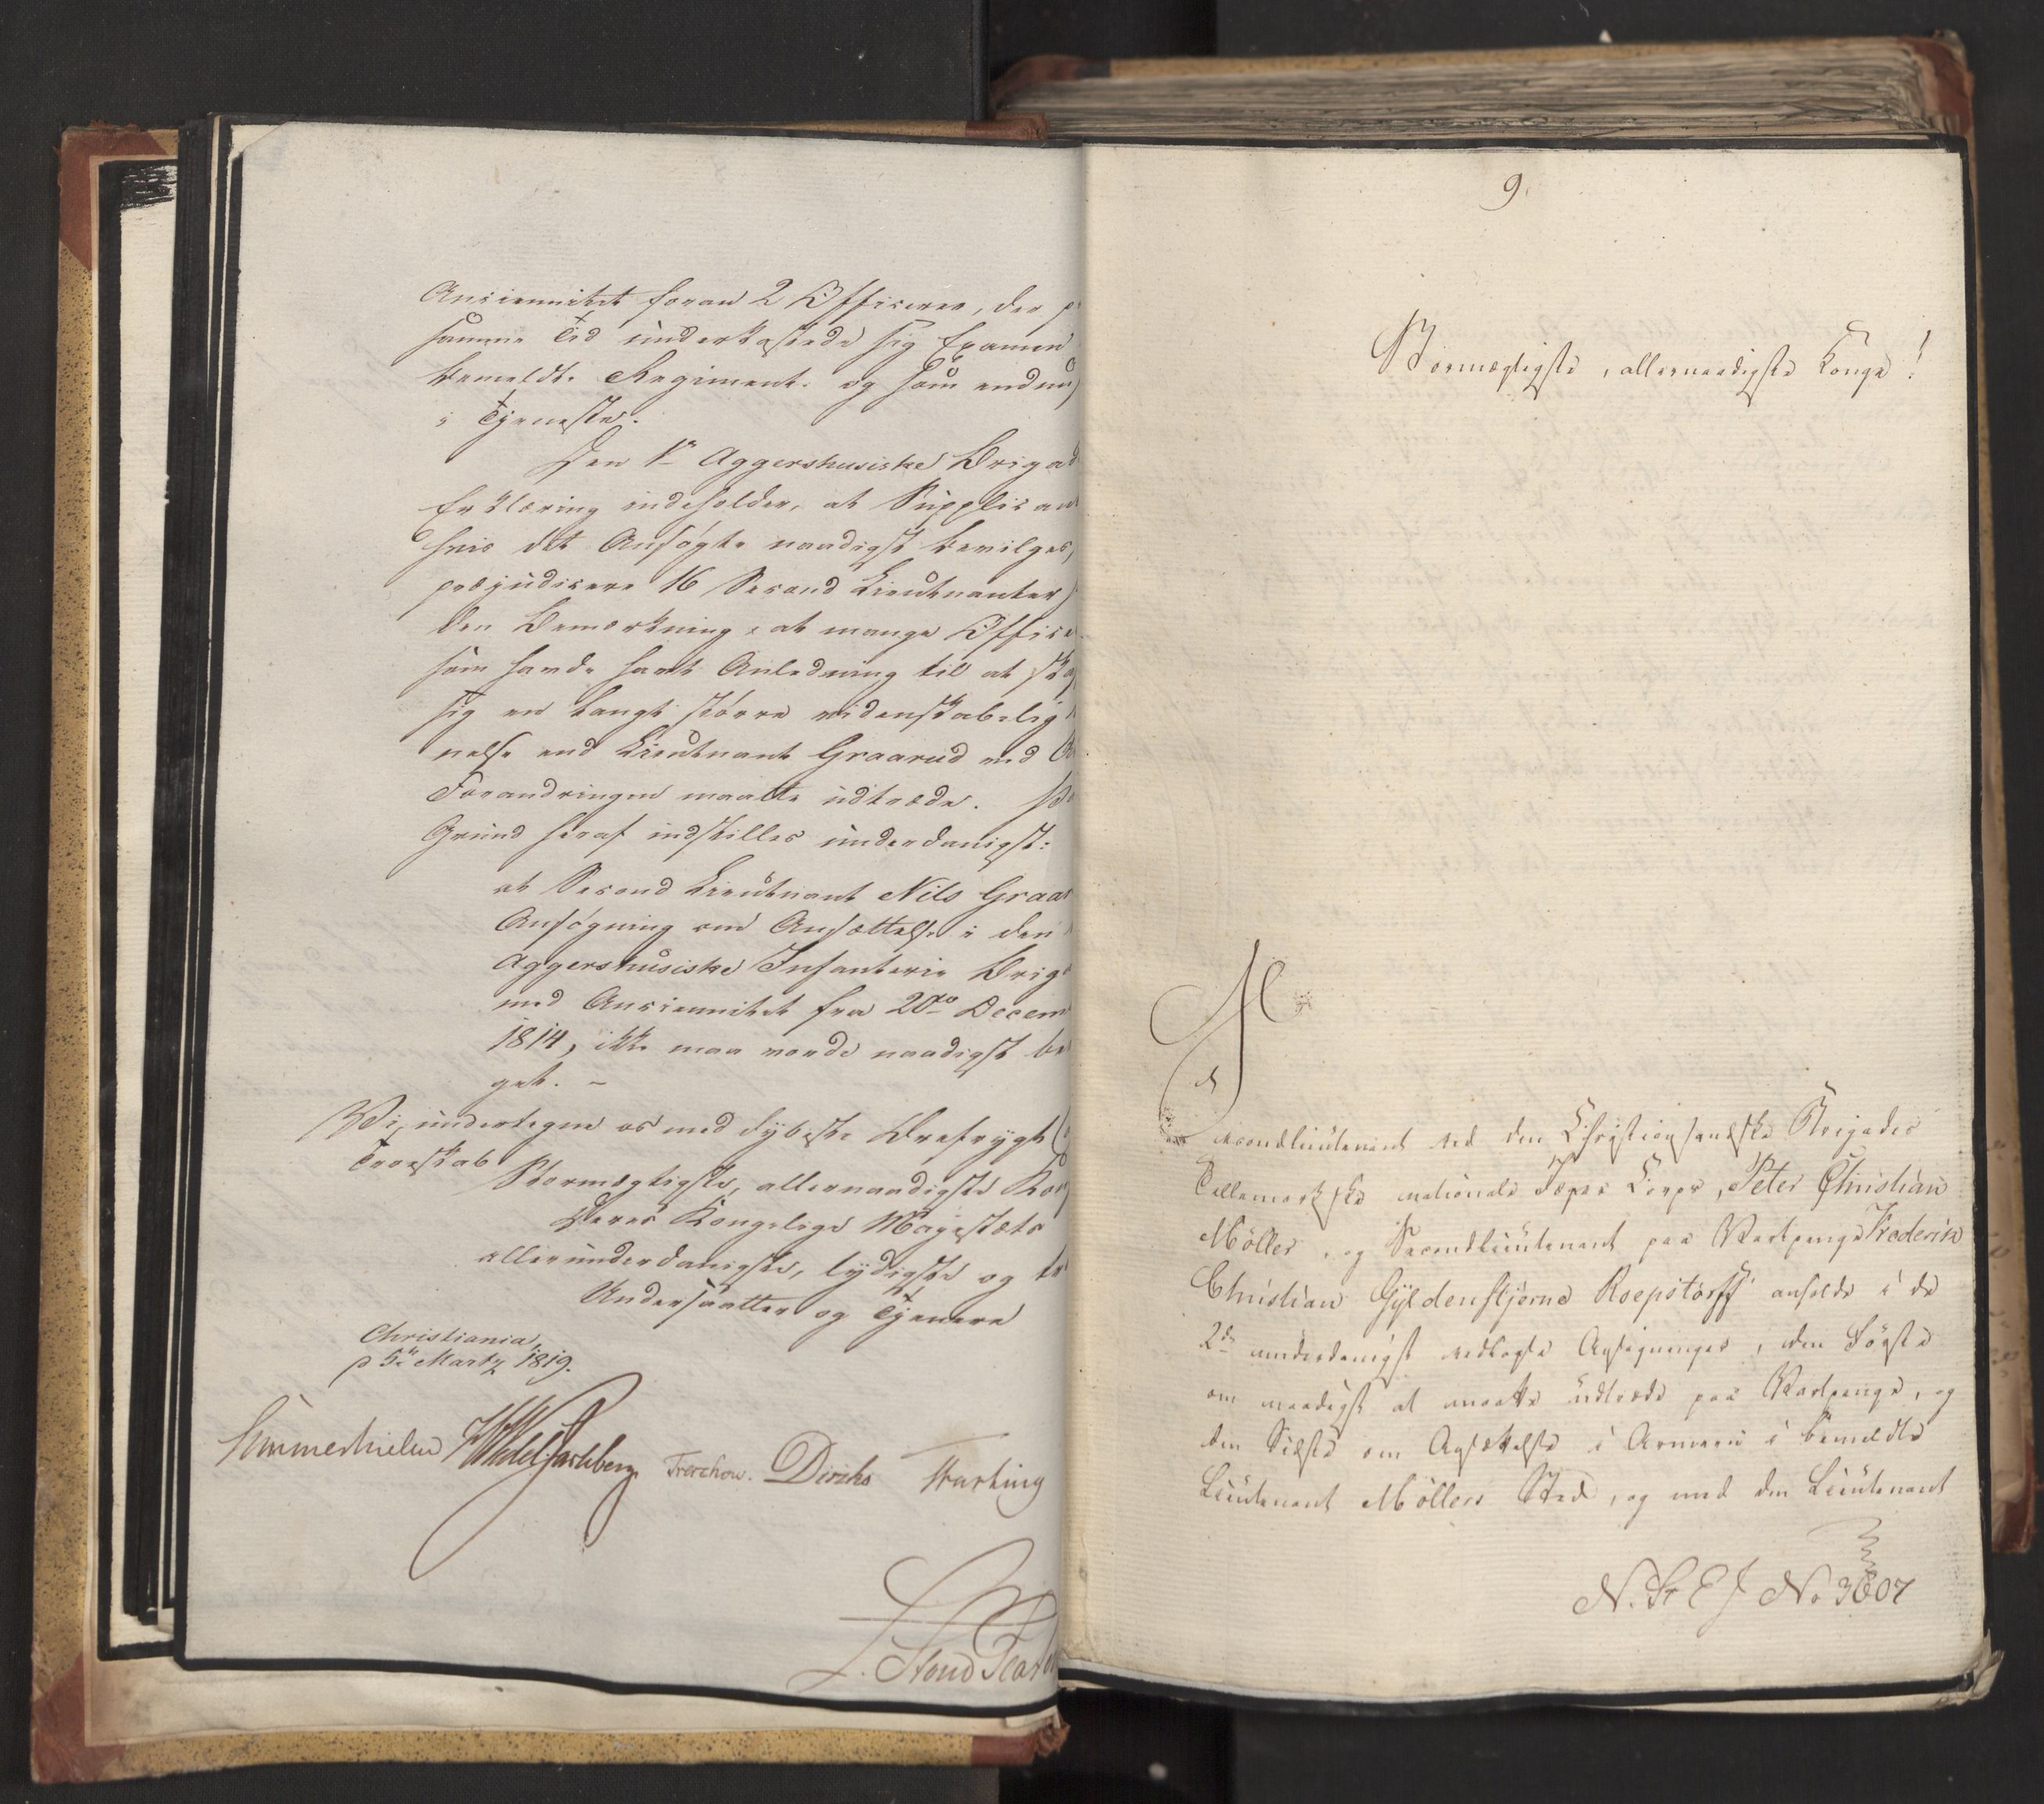 Anciennitet foran 2 Officerer, der p
samme Tid underkastede sig Examen
bemeldte Regiment og som endnu
i Tjeneste.
Den 1ste Aggershusiske Brigad
Erklæring indeholder, at Supplicant
hvis det Ansøgte naadigst bevilges,
præjudicere 16 Second Lieutnanter
den Bemærkning, at mange Office
som havde havt Anledning til at ska
sig en langt større videnskabelig
nelse end Lieutnant Graarud ved
Forandringen maatte udtræde. Paa
Grund heraf indstilles underdanigst:
at Second Lieutnant Nils Graar
Ansøgning om Ansættelse i den
Aggershusiske Infanterie Brig
med Anciennitet fra 20de Decem
1814, ikke maa vorde naadigst be
get. –
Vi undertegne os med dybeste Ærefrygt
Troeskab
Stormægtigste, allernaadigste Kon
Deres Kongelige Majestæts
allerunderdanigste, lydigste og tr
Undersaatter og Tjenere
Christiania,
p 5te Martz 1819.
Sommerhielm HWedelJarlsberg Treschow. Diriks Krebs
9.
Stormægtigste, allernaadigste Konge!
Secondlieutenant ved den Christiansandske Brigades
Tellemarkske nationale Jæger Corps, Peter Christian
Möller, og Secondlieutenant paa Vartpenge Frederik
Christian Gyldenstjerne Roepstorff anholde i de
2de underdanigst vedlagte Ansøgninger, den Første
om naadigst at maatte udtræde paa Vartpenge, og
den Sidste om Ansættelse i Armeen i bemeldte
Lieutenant Möllers Sted, og med den Lieutenant
N. St E J No 3607